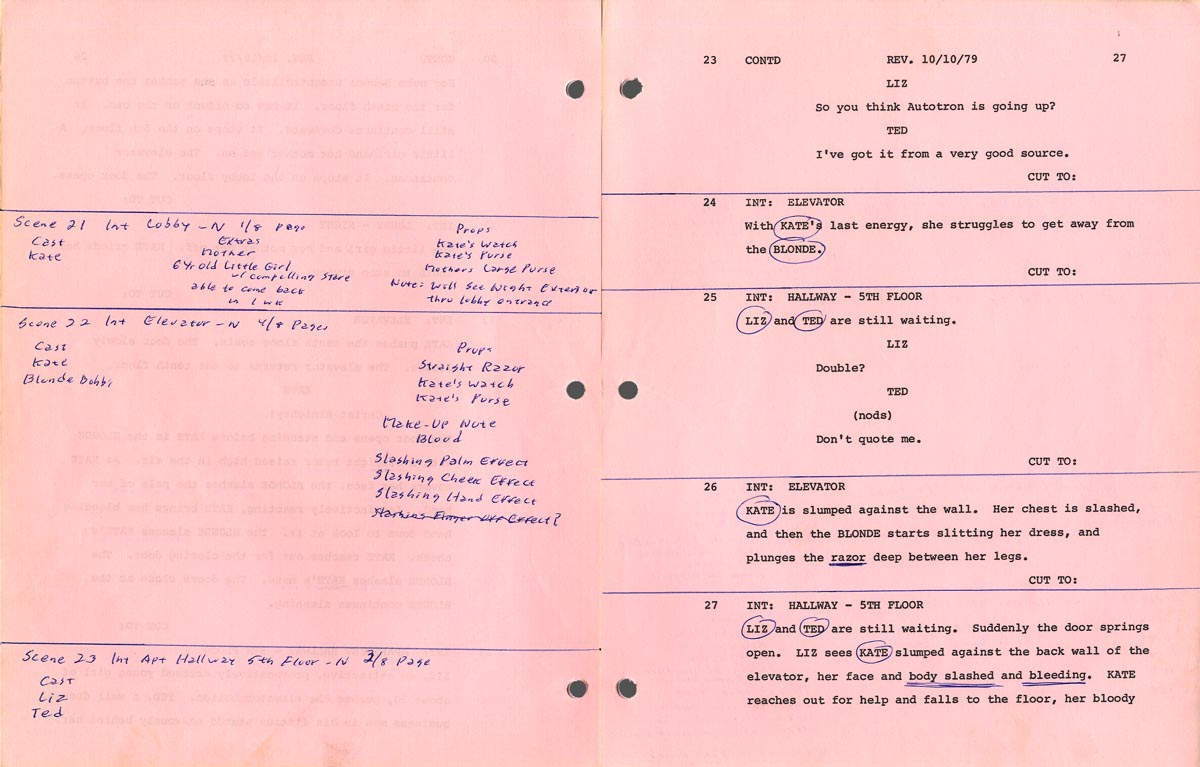 Scene 21 Int Lobby - N 1/8 Page
Cast
Kate
Extras
Mother
6 yr old Little Girl
w/ compelling stare
able to come back
in 1 wk
Props
Kate's Watch
Kate's Purse
Mothers Large Purse
Note: Will See Night Exterior
thru lobby entrance
Scene 22 Int Elevator - N 4/8 Pages
Cast
Kate
Blonde Bobbi
Props
Straight Razor
Kate's Watch
Kate's Purse
Make-Up Note
Blood
Slashing Palm Effect
Slashing Cheek Effect
Slashing Hand Effect
Slashing Finger Off Effect?
Scene 23 Int Apt Hallway 5th Floor - N 3/8 Page
Cast
Liz
Ted
23 CONTD REV. 10/10/79 27
LIZ
So you think Autotron is going up?
TED
I've got it from a very good source.
CUT TO:
24 INT: ELEVATOR
With KATE's last energy, she struggles to get away from
the BLONDE.
CUT TO:
25 INT: HALLWAY - 5TH FLOOR
LIZ and TED are still waiting.
LIZ
Double?
TED
(nods)
Don't quote me.
CUT TO:
26 INT: ELEVATOR
KATE is slumped against the wall. Her chest is slashed,
and then the BLONDE starts slitting her dress, and
plunges the razor deep between her legs.
CUT TO:
27 INT: HALLWAY - 5TH FLOOR
LIZ and TED are still waiting. Suddenly the door springs
open. LIZ sees KATE slumped against the back wall of the
elevator, her face and body slashed and bleeding. KATE
reaches out for help and falls to the floor, her bloody